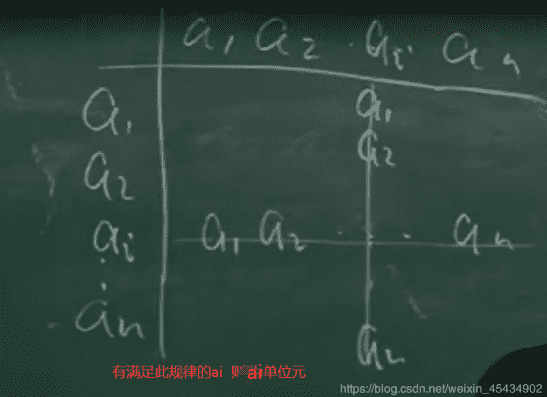 a₁ a₂ · aᵢ aₙ
a₁ a₁
a₂ a₂
aᵢ a₁ a₂ · · · aₙ
⋮
aₙ aₙ
有满足此规律的ai 则ai单位元
https://blog.csdn.net/weixin_45434902